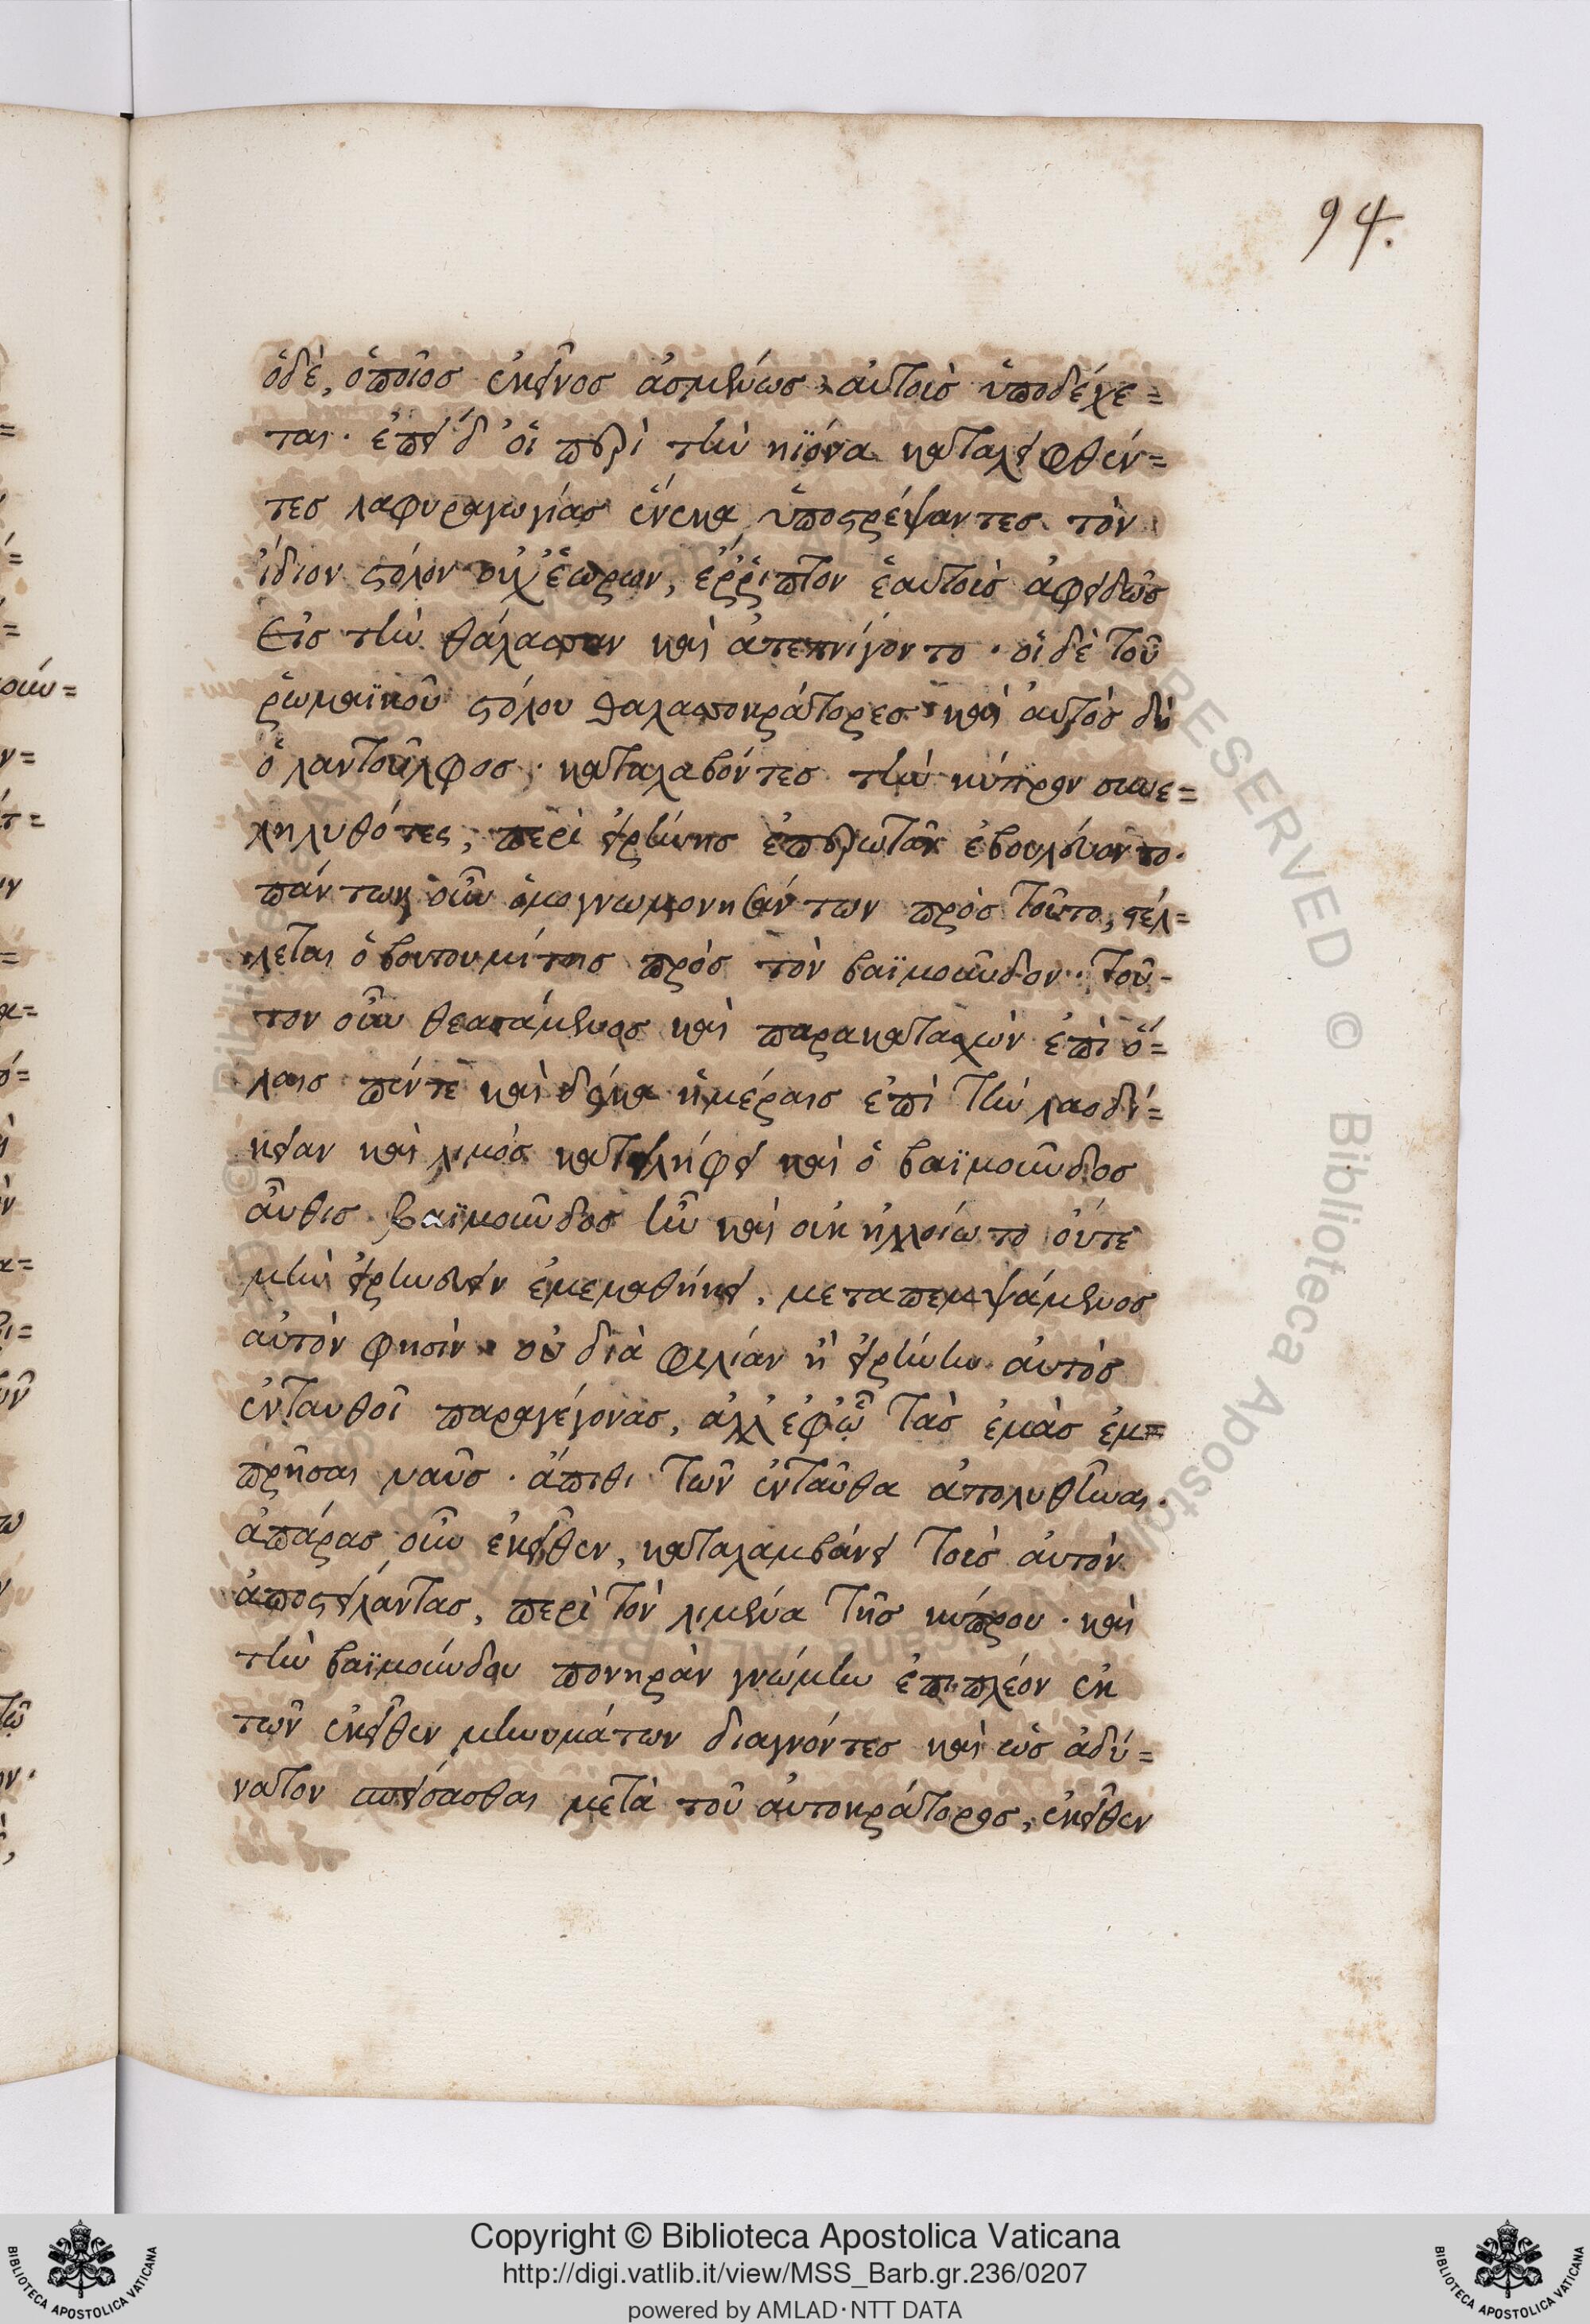 94.
ὁδὲ, ὁποῖος ἐκεῖνος ἀσμένως αὐτοὺς ὑποδέχε=
ται. ἐπεὶ δ' οἱ περὶ τὴν κϊόνα καταλειφθέν=
τες λαφυραγωγίας ἕνεκα ὑποστρέψαντες τὸν
ἴδιον στόλον οὐχ ἑώρων, ἐῤῥίπτον ἑαυτοὺς ἀφειδῶς
εἰς τὴν θάλασσαν καὶ ἀπεπνίγοντο. οἱ δὲ τοῦ
ῥωμαϊκοῦ στόλου θαλασσοκράτορες καὶ αὐτὸς δὴ
ὁ λαντοῦλφος. καταλαβόντες τὴν κύπρον συνε=
ληλυθότες, περὶ εἰρήνης ἐπερωτᾶν ἐβουλεύοντο.
πάντων οὖν ὁμογνωμονησάντων πρὸς τοῦτο, στέλ=
λεται ὁ βουτουμίτης πρὸς τὸν βαϊμοῦνδον. τοῦ-
τον οὖν θεασάμενος καὶ παρακατασχὼν ἐπὶ ὅ=
λαις πέντε καὶ δέκα ἡμέραις ἐπὶ τὴν λαοδί=
κειαν καὶ λιμὸς κατειλήφει καὶ ὁ βαϊμοῦνδος
αὖθις βαϊμοῦνδος ἦν καὶ οὐκ ἠλλοίωτο οὔτε
μὴν εἰρηνεύειν ἐμεμαθήκει, μεταπεμψάμενος
αὐτὸν φησὶν. οὐ διὰ φιλίαν ἢ εἰρήνην αὐτὸς
ἐνταυθοῖ παραγέγονας, ἀλλ' ἐφ' ᾧ τὰς ἐμὰς ἐμ=
πρῆσαι ναῦς. ἄπιθι τῶν ἐνταῦθα ἀπολυθῆναι.
ἀπάρας οὖν ἐκεῖθεν, καταλαμβάνει τοὺς αὐτὸν
ἀποστείλαντας, περὶ τὸν λιμένα τῆς κύπρου. καὶ
τὴν βαϊμούνδου πονηρὰν γνώμην ἐπιπλέον ἐκ
τῶν ἐκεῖθεν μηνυμάτων διαγνόντες καὶ ὡς ἀδύ=
νατον σπείσασθαι μετὰ τοῦ αὐτοκράτορος, ἐκεῖθεν
Copyright © Biblioteca Apostolica Vaticana
http://digi.vatlib.it/view/MSS_Barb.gr.236/0207
powered by AMLAD·NTT DATA
BIBLIOTECA APOSTOLICA VATICANA
BIBLIOTECA APOSTOLICA VATICANA